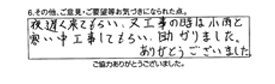 6.その他、ご意見・ご要望等お気づきになられた点。
夜遅く来てもらい、又工事の時は小雨と
寒い中工事してもらい、助かりました。
ありがとうございました
ご協力ありがとうございました。